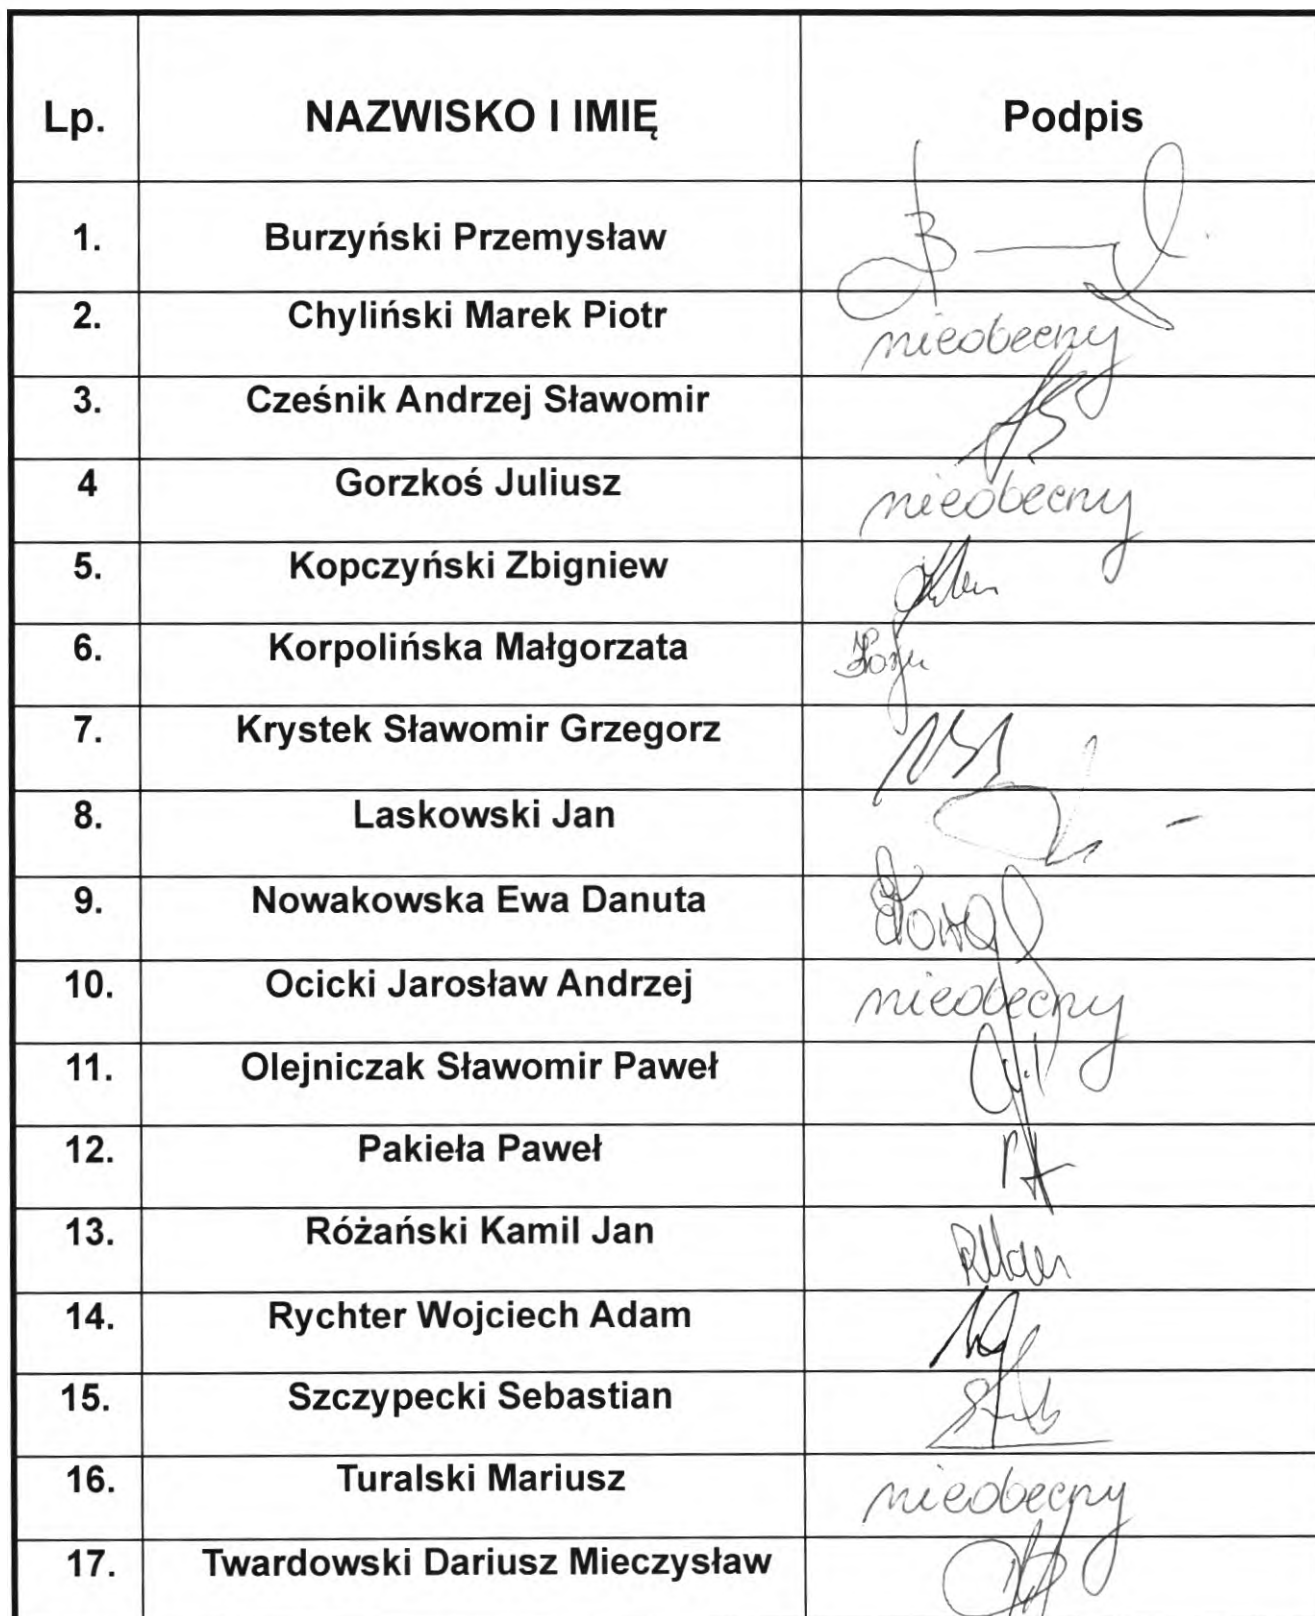 Lp. NAZWISKO I IMIĘ Podpis
1. Burzyński Przemysław
2. Chyliński Marek Piotr nieobecny
3. Cześnik Andrzej Sławomir
4 Gorzkoś Juliusz nieobecny
5. Kopczyński Zbigniew
6. Korpolińska Małgorzata
7. Krystek Sławomir Grzegorz
8. Laskowski Jan
9. Nowakowska Ewa Danuta
10. Ocicki Jarosław Andrzej nieobecny
11. Olejniczak Sławomir Paweł
12. Pakieła Paweł
13. Różański Kamil Jan
14. Rychter Wojciech Adam
15. Szczypecki Sebastian
16. Turalski Mariusz nieobecny
17. Twardowski Dariusz Mieczysław